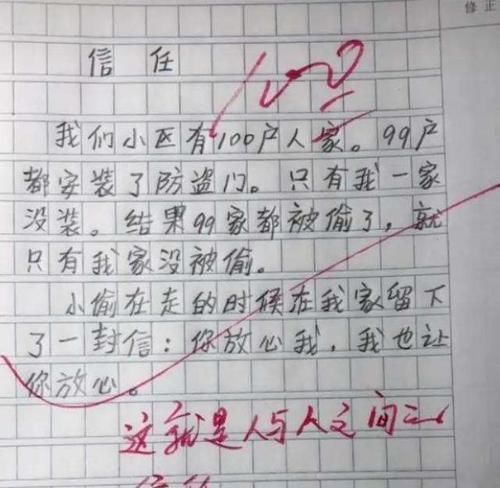 修正
信任
100
我们小区有100户人家。99户
都安装了防盗门。只有我一家
没装。结果99家都被偷了,就
只有我家没被偷。
小偷在走的时候在我家留下
了一封信:你放心我,我也让
你放心。
这就是人与人之间